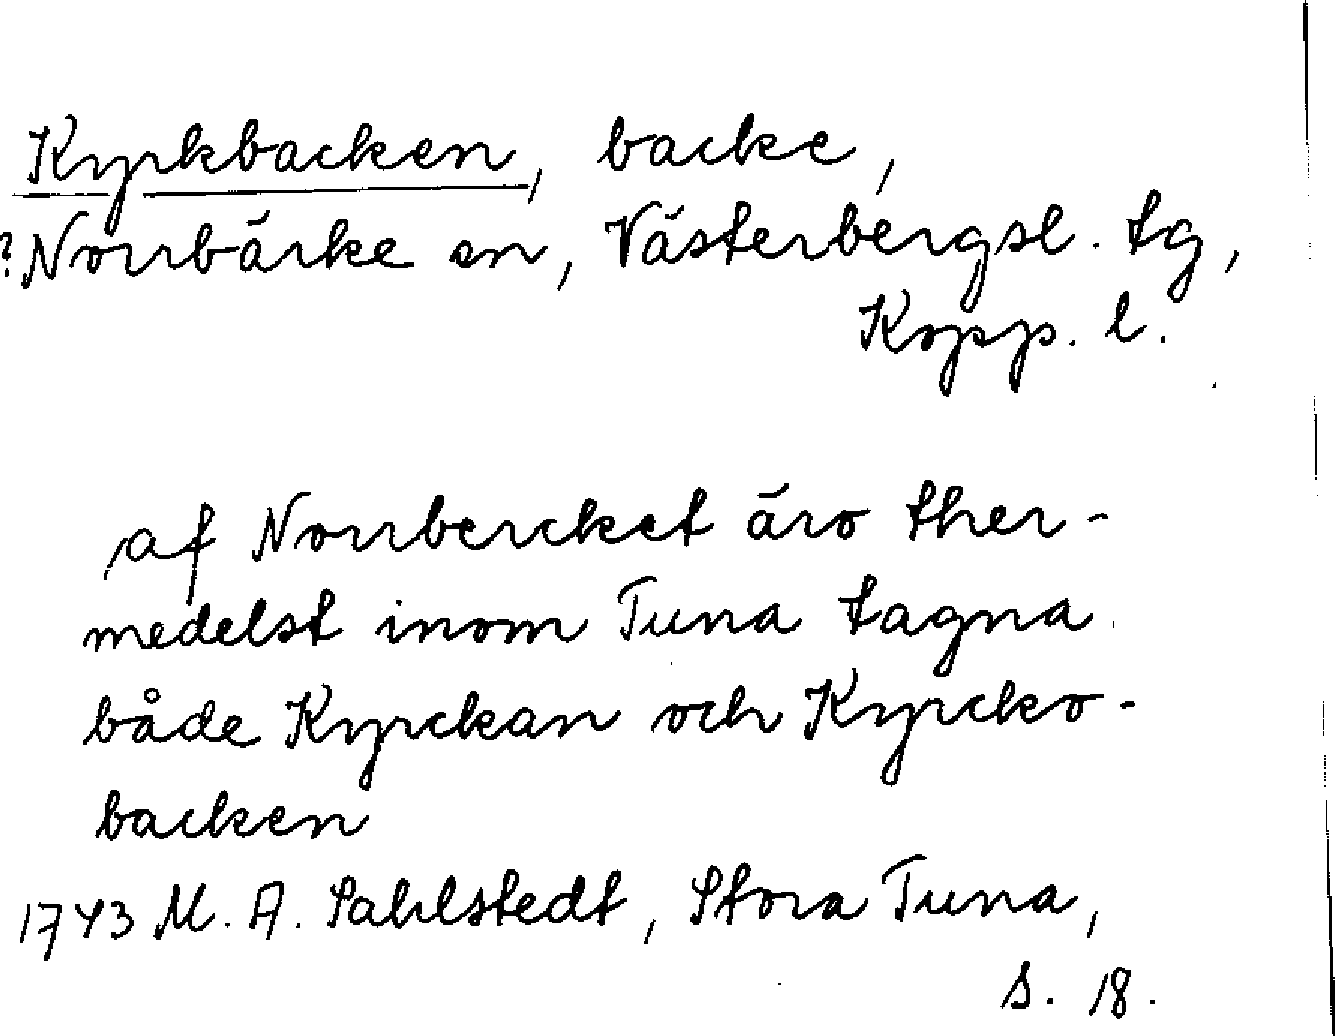 Kyrkbacken, backe,
?Norrbärke sn, Västerbergsl. tg,
Kopp. l.
af Norrbercket äro ther-
medelst inom Tuna tagna
både Kyrckan och Kyrcko-
backen
1743 M. A. Sahlstedt, Stora Tuna,
s. 18.